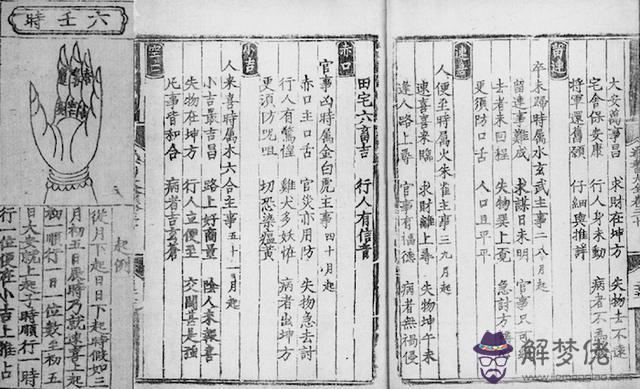 六壬時
大安萬事昌 求財在坤方 失物去不遠
宅舍保安康 行人身未動 病者不
將軍還舊額 仔細與推詳
留連
卒未歸時屬水玄武主事二八月起
留連事難成 求謀日未明 官事只可
去者未回程 失物巽上覓 急討方
更須防口舌 人口且平平
速喜
人便至時屬火朱雀主事三九月起
速喜喜來臨 求財離上尋 失物坤午未
逢人路上尋 官事有福德 病者無禍侵
田宅六畜吉 行人有信音
赤口
官事凶時屬金白虎主事四十月起
赤口主口舌 官災亦用防 失物急去討
行人有驚惶 雞犬多妖怪 病者出坤方
更須防咒咀 切恐染瘟黃
小吉
人來喜時屬木六合主事五十一月起
小吉最吉昌 路上好商量 陰人來報喜
失物在坤方 行人立便至 交關甚是強
凡事皆和合 病者吉
空亡
起例
從月下起日日下起時假如三
月初五日辰時乃就速喜上起
初一順行一日一位數至初五
日大安就上起子時順行一時
行一位便在小吉上推占
解梦佬
jiemenglao.com